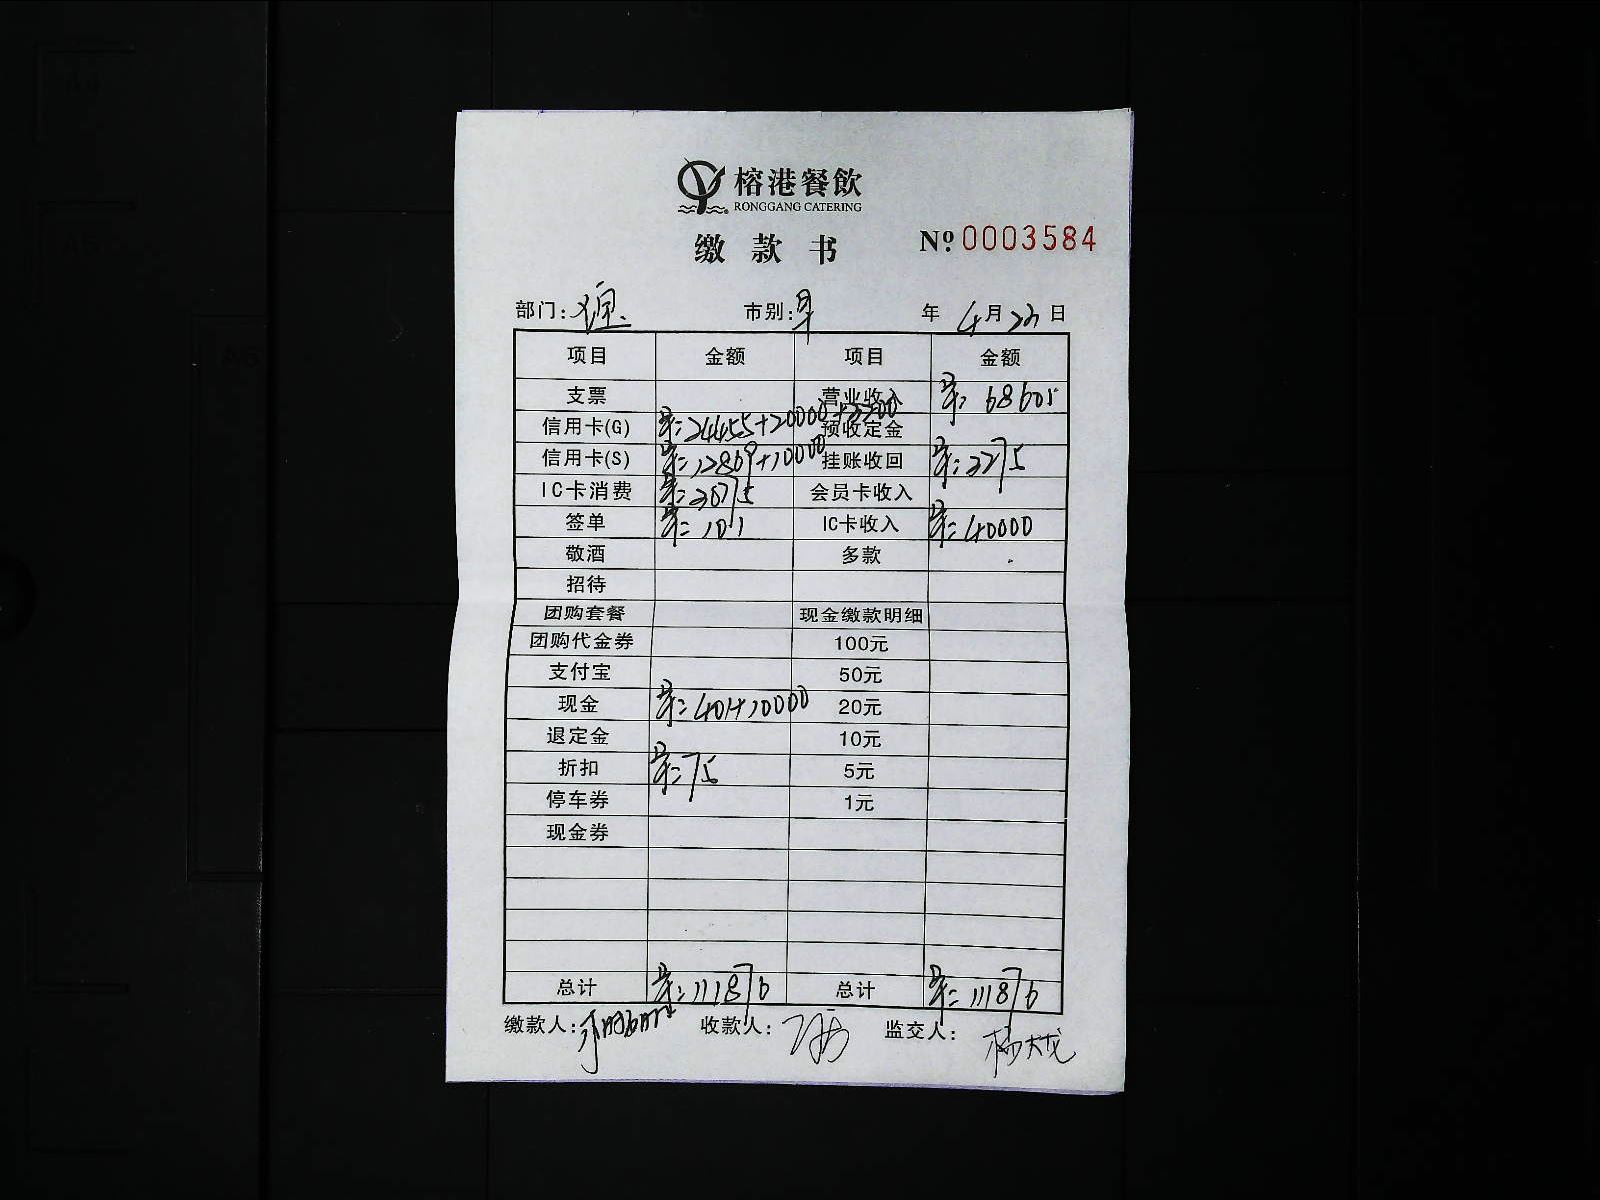 榕港餐飲
RONGGANG CATERING
缴款书 Nº 0003584
部门: 市别: 年 4月23日
项目 金额 项目 金额
支票 营业收入 68601
信用卡(G) 24455+20000+ 预收定金
信用卡(S) 12869+10000 挂账收回 3275
IC卡消费 会员卡收入
签单 101 IC卡收入 40000
敬酒 多款
招待
团购套餐 现金缴款明细
团购代金券 100元
支付宝 50元
现金 401+10000 20元
退定金 10元
折扣 75 5元
停车券 1元
现金券
总计 111876 总计 111876
缴款人: 收款人: 监交人: